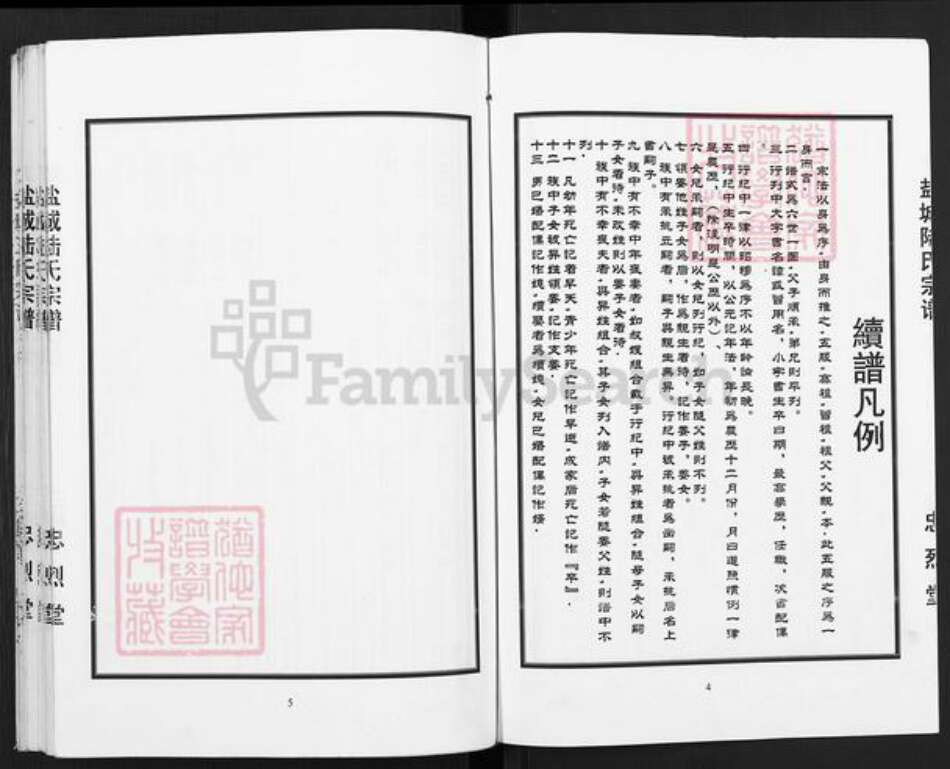 盐城陆氏宗谱
忠烈堂
續譜凡例
一 宗法以房為序，由房而推之，五服，高祖，曾祖，祖父，父親，本，此五服之序為一
房而言。
二 譜式為六世一圖，父子順承，弟兄則平列。
三 行列中大字書名諱或習用名，小字書生卒日期，最高學歷，任職，次書配偶
四 行紀中一律以昭穆為序不以年齡論長晚。
五 行紀中生卒時間，以公元記年法，年朝為農歷十二月份，月日遵照慣例一律
是農歷，（除注明是公歷以外）、
六 女兒承嗣者，則以女兒列行紀，如子女隨父姓則不列。
七 領養他姓子女為后，作為親生看待，記作養子，養女。
八 族中有承祧立嗣者，嗣子與親生無異，行紀中號承祧者為出嗣，承祧后名上
書嗣子。
九 族中有不幸中年喪妻者，如叔嫂組合載于行紀中，與異姓組合，隨母子女以嗣
子女看待，未改姓則以養子女看待．
十 族中有不幸喪夫者，與異姓組合，其子女列入譜內，子女若隨養父姓，則譜中不
列．
十一 凡幼年死亡記着早夭，青少年死亡記作早逝，成家后死亡記作『卒』．
十二 族中子女被異姓領養，記作文養．
十三 男已婚配偶記作娩，續娶者為續娩，女兒已婚配偶記作婿．
4
5
盐城陆氏宗譜
忠烈堂
FamilySearch
猶他家譜學會收藏